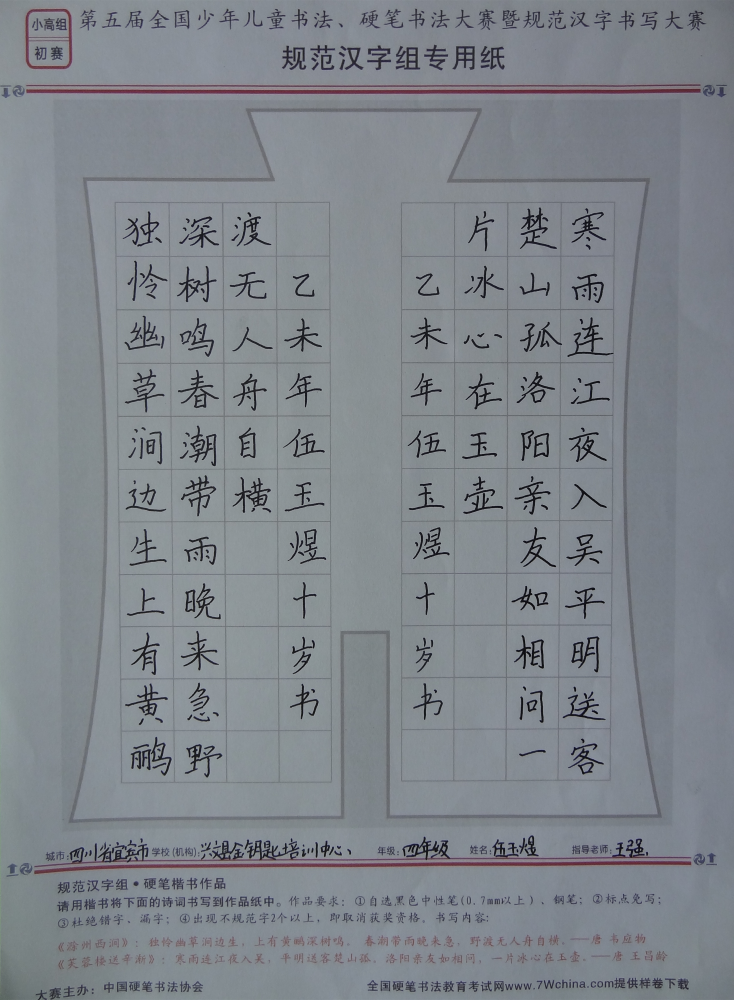 小高组
初赛
第五届全国少年儿童书法、硬笔书法大赛暨规范汉字书写大赛
规范汉字组专用纸
独怜幽草涧边生上有黄鹂
深树鸣春潮带雨晚来急野
渡无人舟自横
乙未年伍玉煜十岁书
寒雨连江夜入吴平明送客
楚山孤洛阳亲友如相问一
片冰心在玉壶
乙未年伍玉煜十岁书
城市:四川省宜宾市 学校(机构):兴文县金钥匙培训中心 年级:四年级 姓名:伍玉煜 指导老师:王强
规范汉字组·硬笔楷书作品
请用楷书将下面的诗词书写到作品纸中。作品要求：①自选黑色中性笔(0.7mm以上)、钢笔；②标点免写；
③杜绝错字、漏字；④出现不规范字2个以上，即取消获奖资格。书写内容:
《滁州西涧》：独怜幽草涧边生，上有黄鹂深树鸣。 春潮带雨晚来急，野渡无人舟自横。——唐 韦应物
《芙蓉楼送辛渐》：寒雨连江夜入吴，平明送客楚山孤。洛阳亲友如相问，一片冰心在玉壶。——唐 王昌龄
大赛主办：中国硬笔书法协会 全国硬笔书法教育考试网www.7Wchina.com提供样卷下载